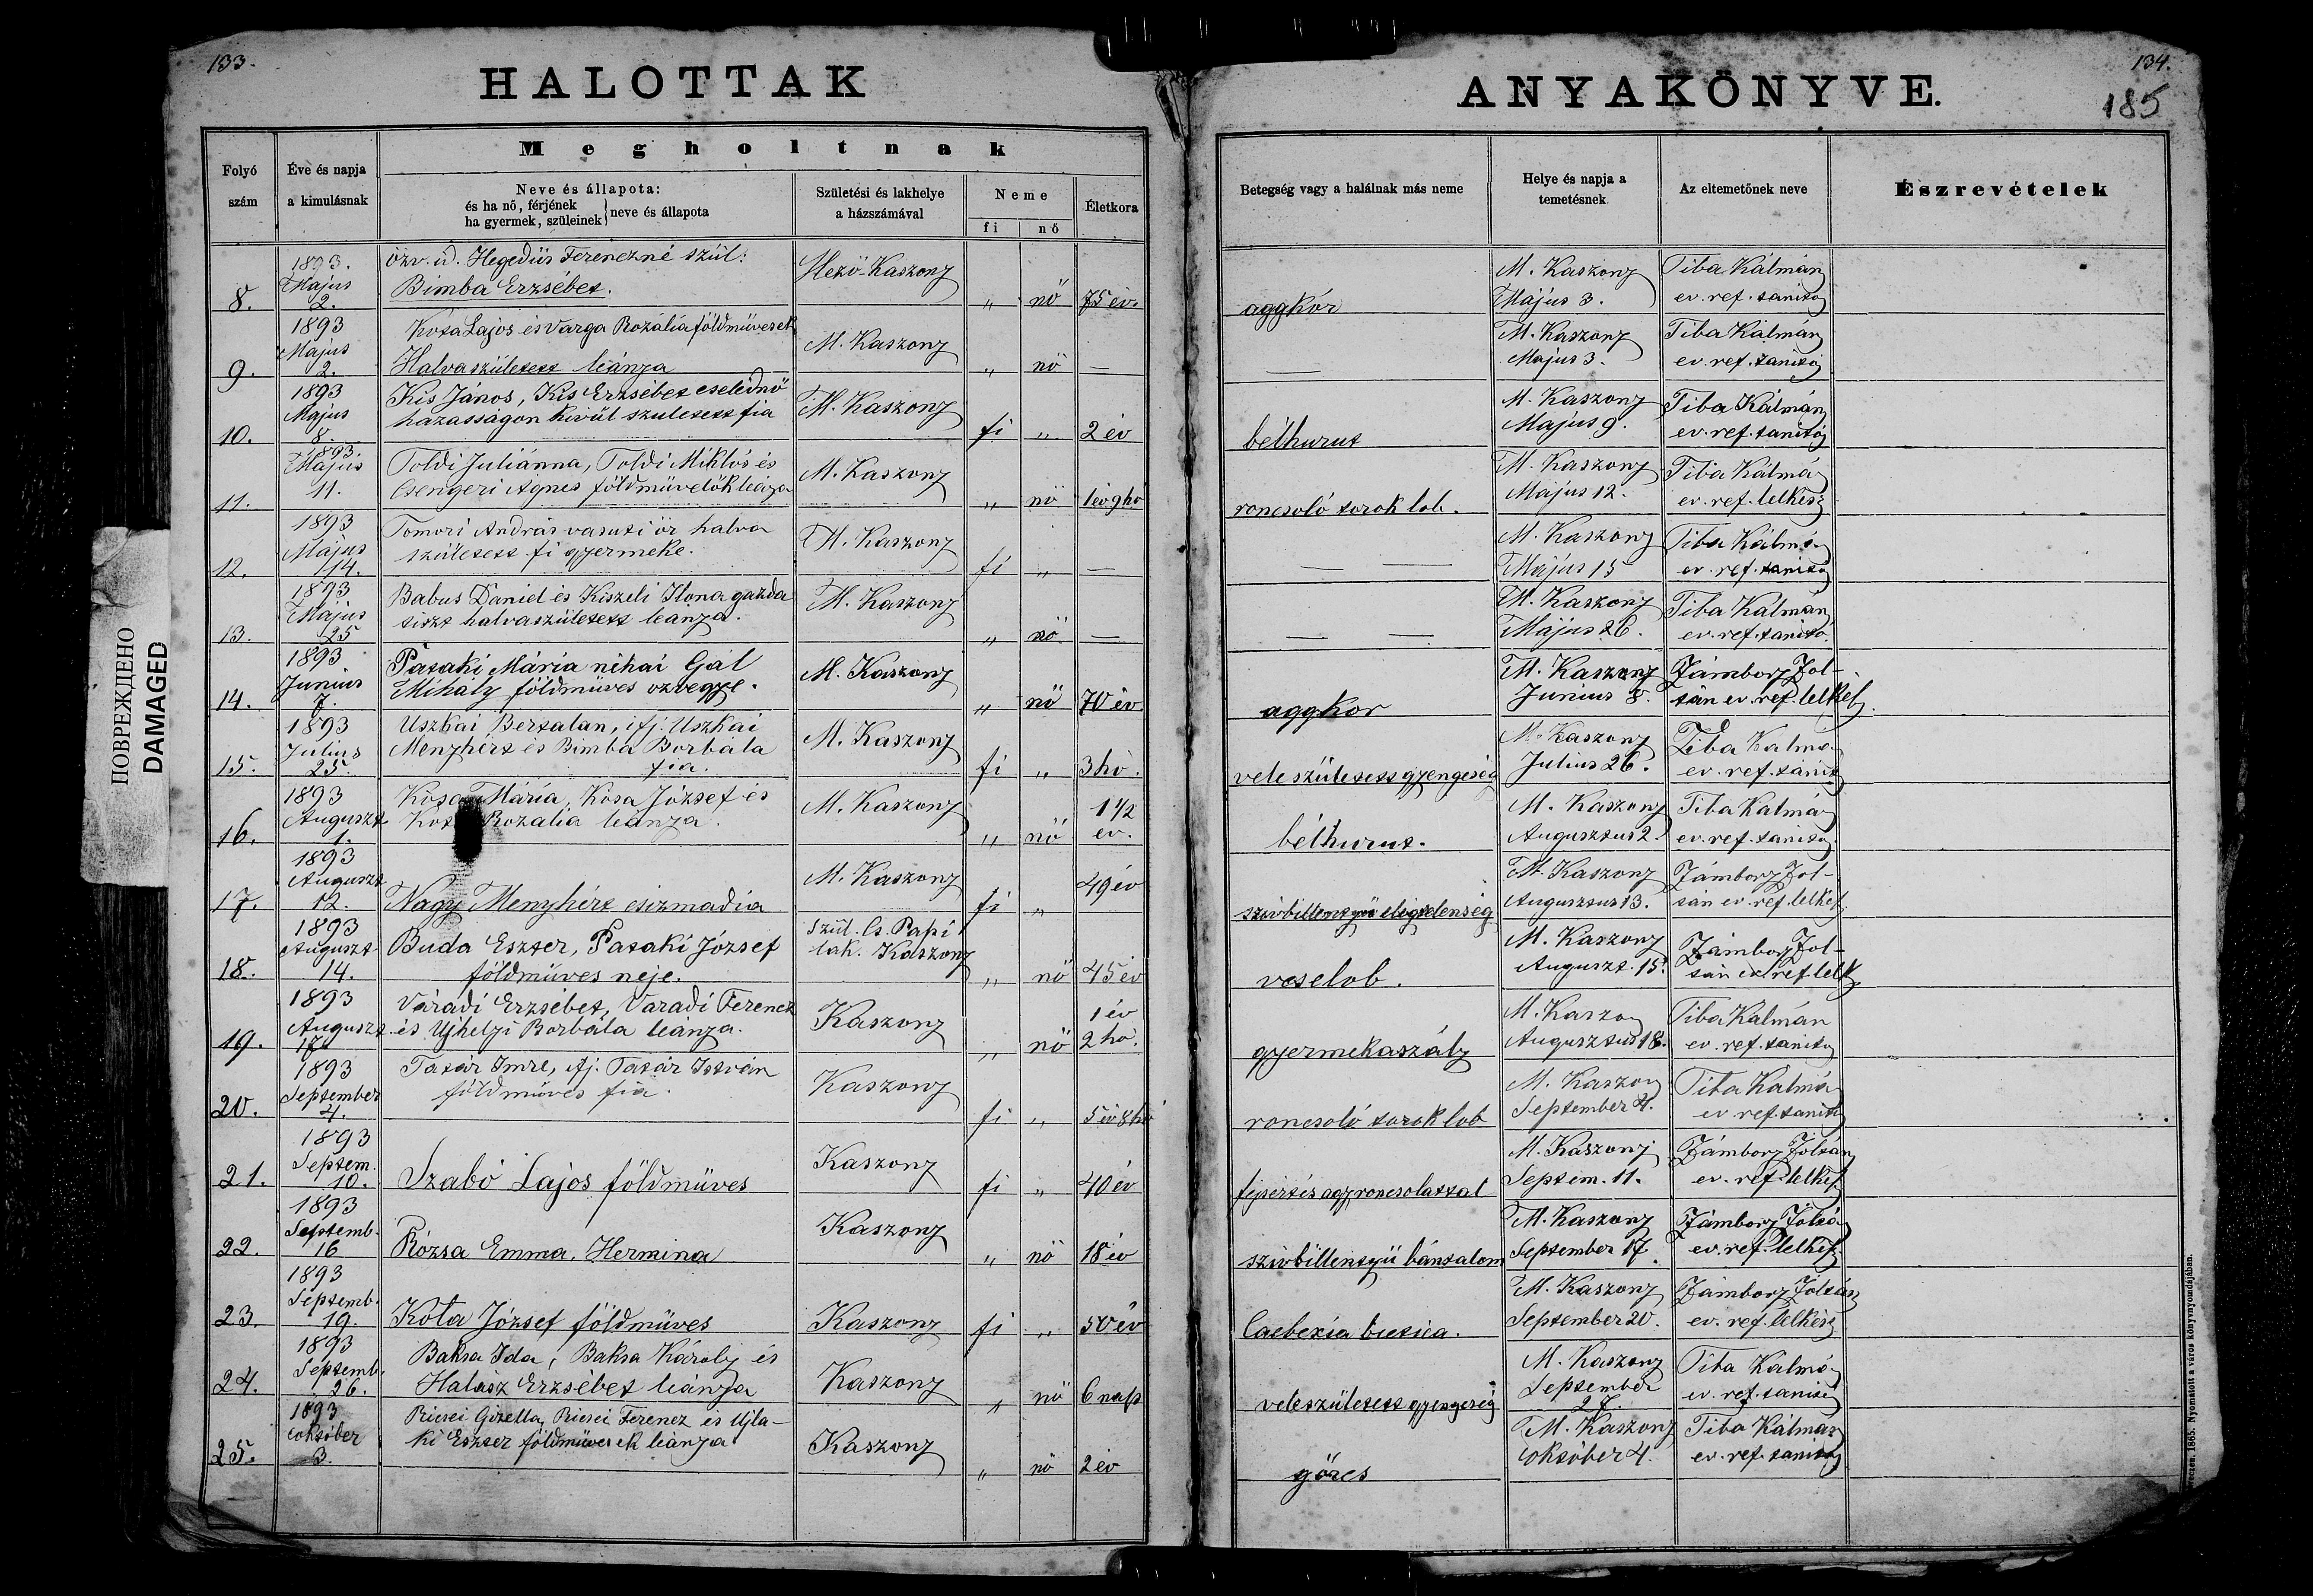 133.
HALOTTAK
Megholtnak
Folyó szám
Éve és napja a kimulásnak
Neve és állapota:
és ha nő, férjének
ha gyermek, szüleinek } neve és állapota
Születési és lakhelye a házszámával
Neme
fi
nő
Életkora
8. 1893. Május 2. özv. id. Hegedüs Ferenczné szül:
Bimba Erzsébet. Mező-Kaszony „ nő 75 év.
9. 1893 Május 2. Kósa Lajos és Varga Rozália földmüvesek
Halva született leánya M. Kaszony „ nő —
10. 1893 Május 8. Kis János, Kis Erzsébet cselédnő
házasságon kivül született fia M. Kaszony fi „ 2 év
11. 1893 Május 11. Toldi Juliánna, Toldi Miklós és
Csengeri Agnes földmüvelők leánya M. Kaszony „ nő 1 év 9 hó
12. 1893 Május 14. Tomori András vasuti őr halva
született fi gyermeke. M. Kaszony fi „ —
13. 1893 Május 25 Babus Dániel és Kiszeli Ilona gazda
tiszt halvaszületett leánya. M. Kaszony „ nő —
14. 1893. Junius 7. Pataki Mária néhai Gál
Mihály földmüves özvegye. M. Kaszony „ nő 70 év.
15. 1893 Julius 25. Uszkai Bertalan, ifj. Uszkai
Menyhért és Bimba Borbála
fia. M. Kaszony fi „ 3 hó.
16. 1893 Auguszt 1. Kósa Mária, Kósa József és
Rozália leánya. M. Kaszony „ nő 1 1/2 év.
17. 1893 Auguszt 12. Nagy Menyhért csizmadia M. Kaszony fi „ 49 év
18. 1893 Auguszt 14. Buda Eszter, Pataki József
földmüves neje. Szül. Cs. Papi
lak. Kaszony „ nő 45 év
19. 1893 Auguszt. 17. Váradi Erzsébet, Váradi Ferencz
és Ujhelyi Borbála leánya. Kaszony „ nő 1 év 2 hó.
20. 1893 September 4. Tatár Imre, ifj. Tatár István
földmüves fia. Kaszony fi „ 5 év 8 hó
21. 1893 Septem. 10. Szabó Lajos földmüves Kaszony fi „ 40 év
22. 1893 Septemb. 16 Rózsa Emma, Hermina Kaszony „ nő 18 év
23. 1893 Septemb. 19. Kóta József földmüves Kaszony fi „ 50 év
24. 1893 Septemb. 26. Baksa Ida, Baksa Károly és
Halász Erzsébet leánya Kaszony „ nő 6 nap
25. 1893 október 3. Ricsei Gizella, Ricsei Ferencz és Ujla-
ki Eszter földmüvesek leánya Kaszony „ nő 2 év
ПОВРЕЖДЕНО
DAMAGED
134.
185
ANYAKÖNYVE.
Betegség vagy a halálnak más neme
Helye és napja a temetésnek
Az eltemetőnek neve
Észrevételek
aggkór M. Kaszony Május 3. Tiba Kálmán ev. ref. tanitó
— M. Kaszony Május 3. Tiba Kálmán ev. ref. tanitó
bélhurut M. Kaszony Május 9. Tiba Kálmán ev. ref. tanitó
roncsoló torok lob. M. Kaszony Május 12. Tiba Kálmán ev. ref. lelkész
— — M. Kaszony Május 15 Tiba Kálmán ev. ref. tanitó
— — M. Kaszony Május 26. Tiba Kálmán ev. ref. tanitó.
aggkor M. Kaszony Junius 8. Zámbory Zol-
tán ev. ref. lelkész.
vele született gyengeség M. Kaszony Julius 26. Tiba Kálmán ev. ref. tanitó
bélhurut. M. Kaszony Augusztus 2. Tiba Kálmán ev. ref. tanitó
szivbillentyü elégtelenség M. Kaszony Augusztus 13. Zámbory Zol-
tán ev. ref. lelkész
veselob. M. Kaszony Auguszt. 15. Zámbory Zol-
tán ev. ref. lelk
gyermekaszály M. Kaszony Augusztus 18. Tiba Kálmán ev. ref. tanitó
roncsoló torok lob M. Kaszony September 4. Tiba Kálmán ev ref. tanitó
fejsértés agyroncsolattal M. Kaszony Septem. 11. Zámbory Zoltán ev. ref. lelkész
szivbillentyü bántalom M. Kaszony September 17. Zámbory Zoltán ev. ref. lelkész
M. Kaszony September 20. Zámbory Zoltán ev. ref. lelkész
veleszületett gyengeség M. Kaszony September 27. Tiba Kálmán ev. ref. tanitó
görcs M. Kaszony október 4. Tiba Kálmán ev. ref. tanitó
1865. Nyomatott a város könyvnyomdájában.